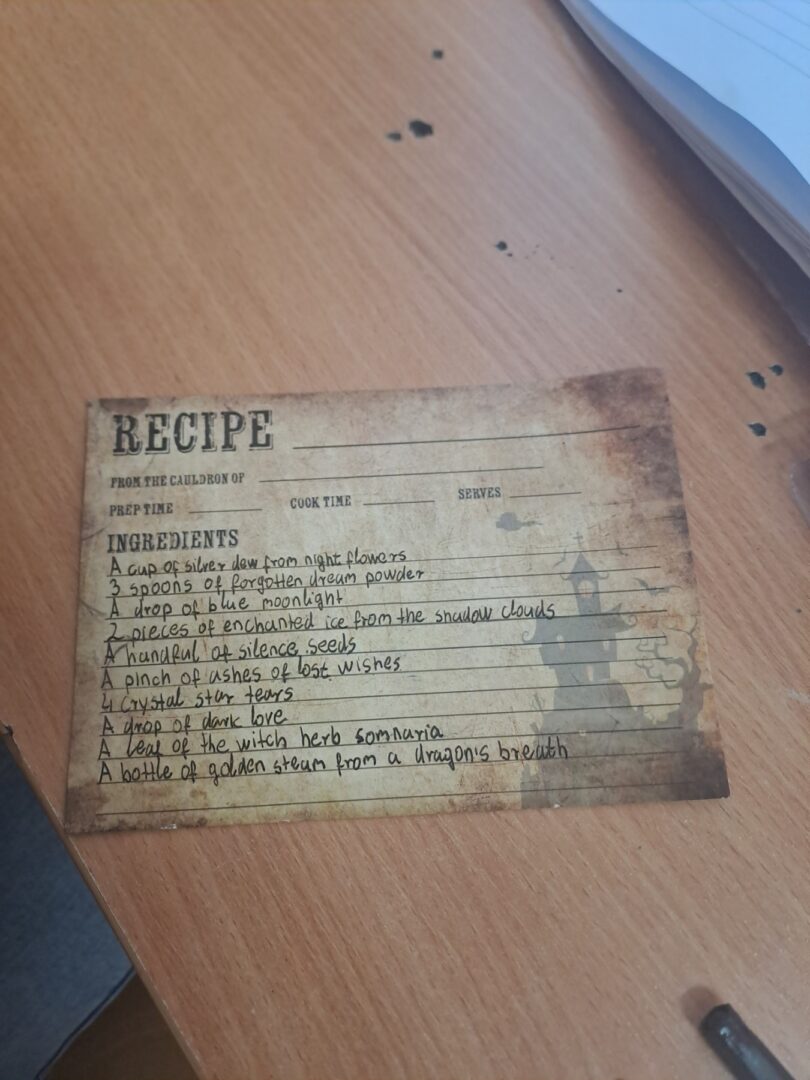 RECIPE
FROM THE CAULDRON OF
PREP TIME COOK TIME SERVES
INGREDIENTS
A cup of silver dew from night flowers
3 spoons of forgotten dream powder
A drop of blue moonlight
2 pieces of enchanted ice from the shadow clouds
A handful of silence seeds
A pinch of ashes of lost wishes
4 crystal star tears
A drop of dark love
A leaf of the witch herb somnaria
A bottle of golden steam from a dragon's breath